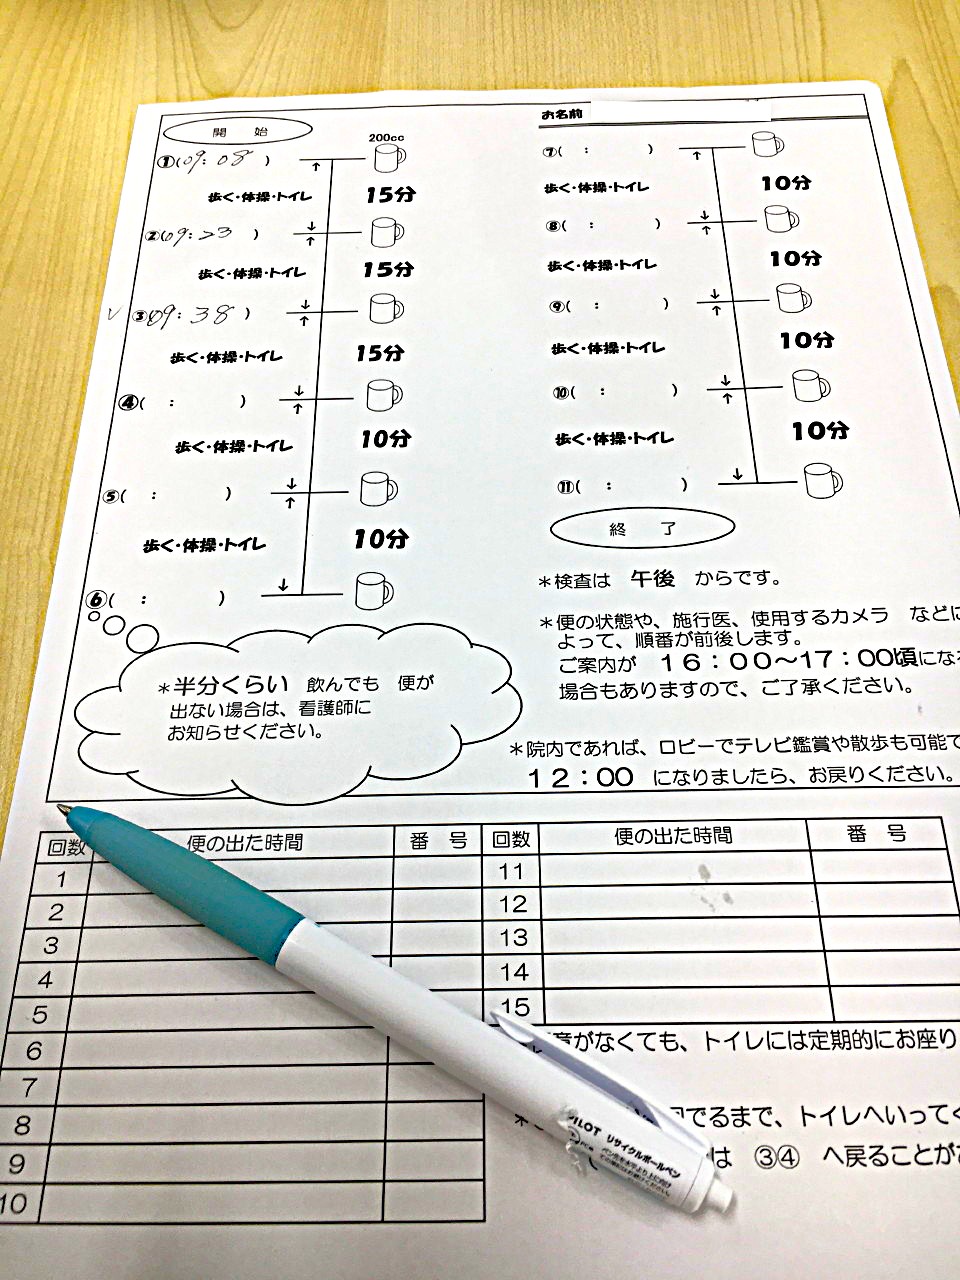 開 始
200cc
①(09:08 )
歩く・体操・トイレ 15分
②(09:23 )
歩く・体操・トイレ 15分
③(09:38 )
歩く・体操・トイレ 15分
④( : )
歩く・体操・トイレ 10分
⑤( : )
歩く・体操・トイレ 10分
⑥( : )
＊半分くらい 飲んでも 便が
出ない場合は、看護師に
お知らせください。
お名前
⑦( : )
歩く・体操・トイレ 10分
⑧( : )
歩く・体操・トイレ 10分
⑨( : )
歩く・体操・トイレ 10分
⑩( : )
歩く・体操・トイレ 10分
⑪( : )
終 了
＊検査は 午後 からです。
＊便の状態や、施行医、使用するカメラ などに
よって、順番が前後します。
ご案内が 16：00～17：00頃にな
場合もありますので、ご了承ください。
＊院内であれば、ロビーでテレビ鑑賞や散歩も可能で
12：00 になりましたら、お戻りください。
回数 便の出た時間 番 号 回数 便の出た時間 番 号
1 11
2 12
3 13
4 14
5 15
6
7
8
9
10
がなくても、トイレには定期的にお座り
でるまで、トイレへいってく
は ③④ へ戻ることが
PILOT リサイクルボールペン